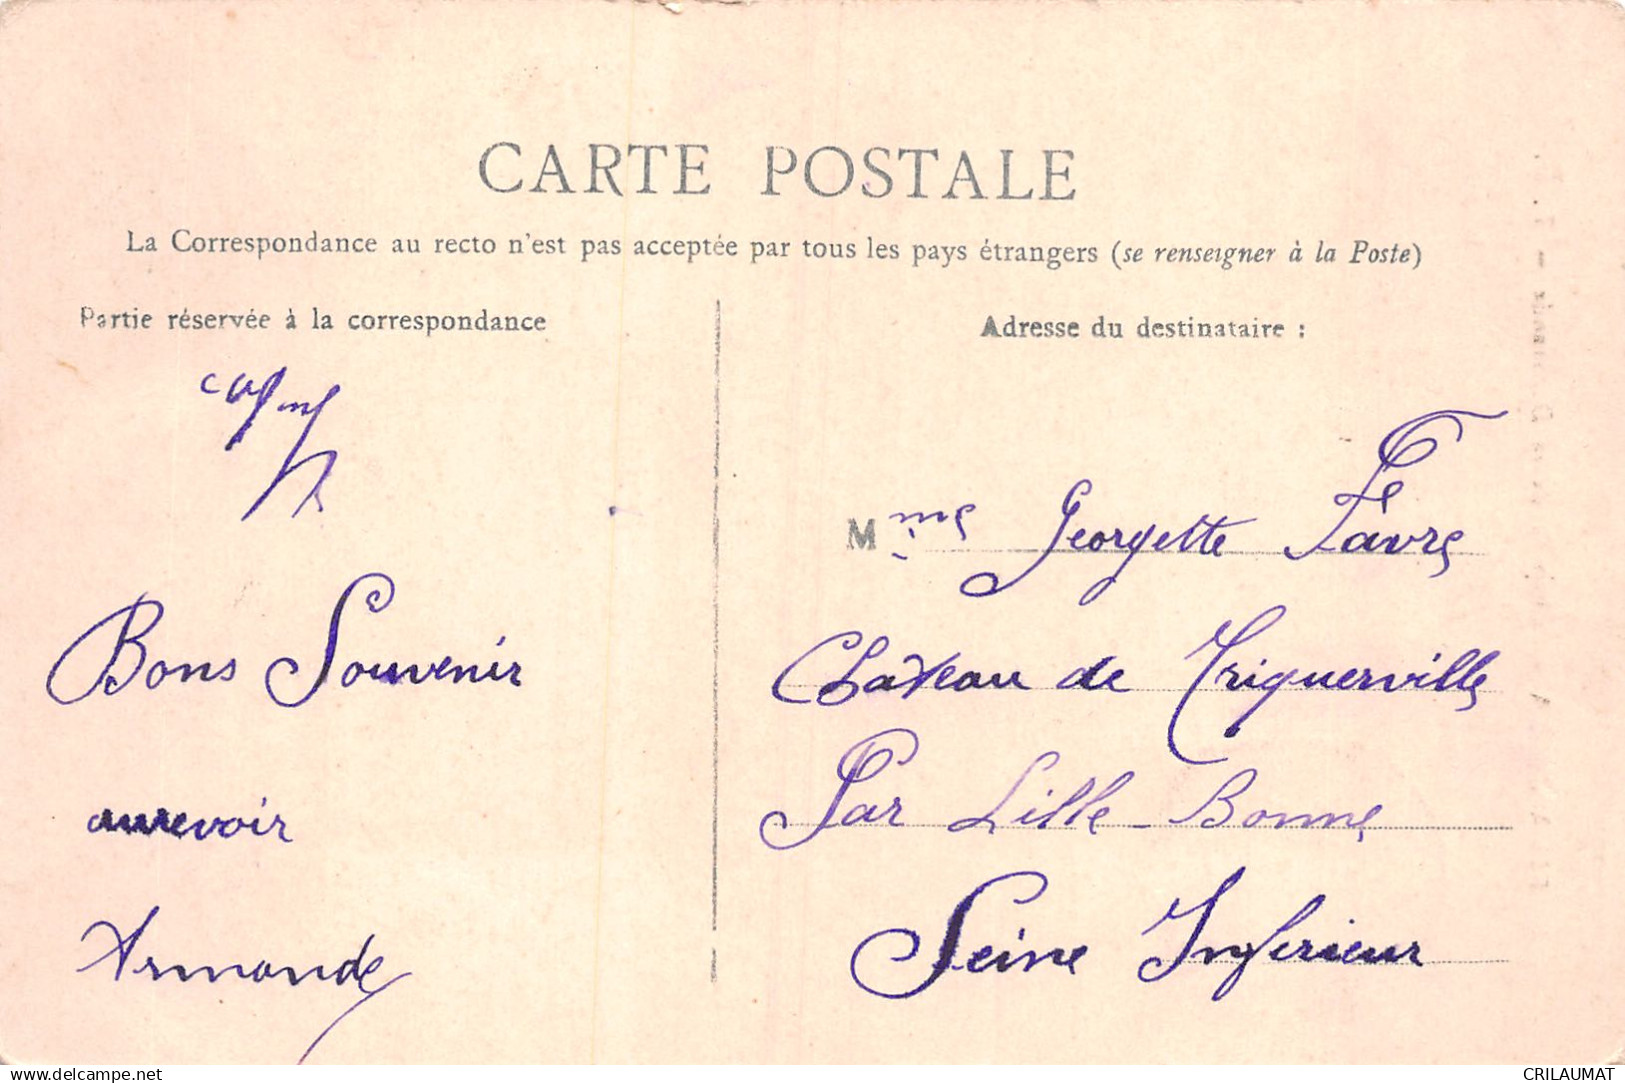 CARTE POSTALE
La Correspondance au recto n'est pas acceptée par tous les pays étrangers (se renseigner à la Poste)
Partie réservée à la correspondance
Bons Souvenir
aurevoir
Armande
Adresse du destinataire :
Mme Georgette Fàvre
Château de Triquerville
Par Lille-Bonne
Seine Inferieur
www.delcampe.net
CRILAUMAT